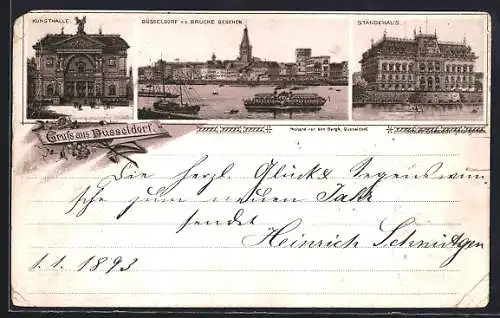 KUNSTHALLE.
DÜSSELDORF v.d. BRÜCKE GESEHEN
STÄNDEHAUS.
Gruß aus Düsseldorf.
Roland van den Bergh, Düsseldorf.
Die herzl. Glück & Segenswün
sche zum neuen Jahr
sendet
Heinrich Schmidtgen
1.1.1893